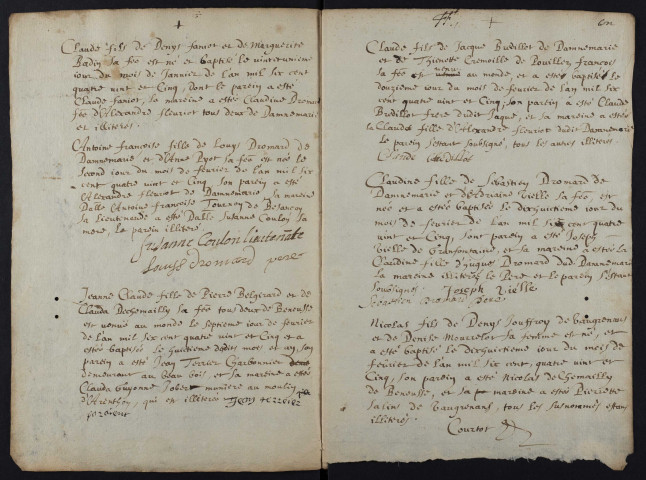 Claude fils de Denys faniot et de Marguerite
Badin sa fēe est né et baptisé le vintunieme
iour du mois de Janvier de l'an mil six cent
quatre vint et Cinq, dont le parein a esté
Claude faniot, sa mareine a estée Claudine Dromard
fēe d'Alexandre fleuriot tous deux de Damnemarie
et illiteres.
Antoine françoise fille de Louys Dromard de
Damnemarie et d'Anne Pyot sa fēe est née le
Second iour du mois de fevrier de l'an mil six
cent quatre vint et Cinq, son parein a esté
Alexandre fleuriot de Damnemarie, sa mareine
Dalle Antoine françoise Tournoy de Besançon
sa lieutenande a esté Dalle Susanne Coulon sa
mere, le parein illiteré.
Susanne Coulon lieutenāte
Louis Dromard pere
Jeanne Claude fille de Pierre Belgerard et de
Claude Dechomailly sa fēe tous deux de Benousse
est venuë au monde le septieme iour de fevrier
de l'an mil six cent quatre vint et Cinq et a
estée baptisée le huitieme dudit mois et an, son
parein a esté Jean Terrier Charbonnier
demeurant au beau bois, et sa mareine a estée
Claude Guyonne Jobert muniere au moulin
qui est illiteree Jean terreier
pareient
+
+
Claude fils de Jacque Bredillot de Damnemarie
et de Thienette Cremoille de Pouilley françois
sa fēe est venu au monde, et a esté baptisé le
douzieme iour du mois de fevrier de l'an mil six
cent quatre vint et Cinq, son parein a esté Claude
Bredillot frere dudit Jaque, et sa mareine a estée
la Claude fille d'Alexandre fleuriot dudit Damnemarie
le parein s'estant soubsigné, tous les autres illiteres.
Claudine fille de Sebastien Dromard de
Damnemarie et de Vielle sa fēe, est
née et a estée baptisée le dixhuitieme iour du
mois de fevrier de l'an mil six cent quatre
vint et Cinq, sont parein a esté Joseph
Vielle de Gransfontaine, et sa mareine a estée la
Claudine fille d'Hugues Dromard dud Damnemarie
la mareine illiteree le Pere et le parein s'estant
soubsignes. Joseph Vielle
Sebastien Dromard pere
Nicolas fils de Denys Jouffroy de Vaugrenans
et de Denise Mourrelot sa femme est né, et
a esté baptisé le dixhuitieme iour du mois de
fevrier de l'an mil six cent, quatre vint et
Cinq, son parein a esté Nicolas de Chemailly
de Benousse, et sa mareine a estée Pierrette
Salins de Vaugrenans, tous les susnommés estans
illiteres.
Courtot